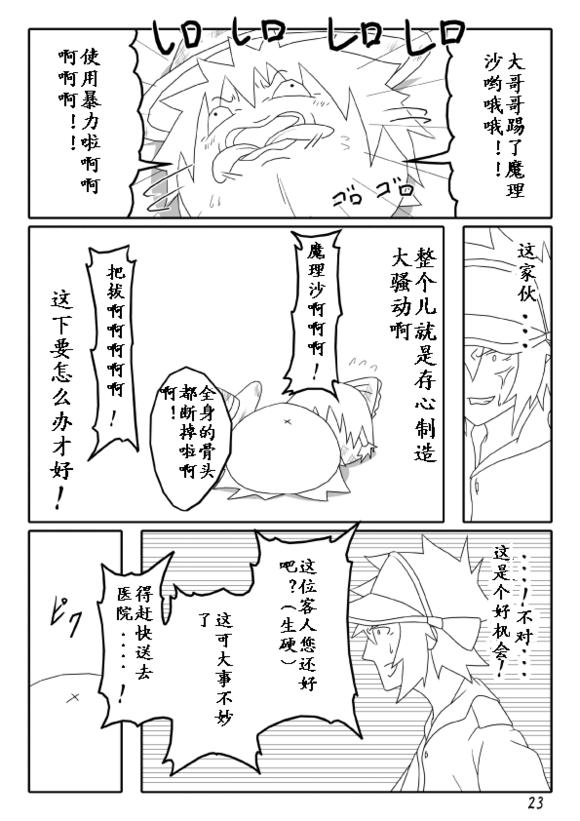 ﾚﾛ ﾚﾛ ﾚﾛ ﾚﾛ
大哥哥踢了魔理
沙哟哦哦！！
使用暴力啦啊啊
啊啊啊！！
ゴロ ゴロ
这家伙....
整个儿就是存心制造
大骚动啊
魔理沙啊啊啊！
全身的骨头
都断掉啦啊
啊！
把拔啊啊啊啊啊！
这下要怎么办才好！
....！不对....
这是个好机会！
这位客人您还好
吧？（生硬）
这可大事不妙
了
得赶快送去
医院....！
ピク
23